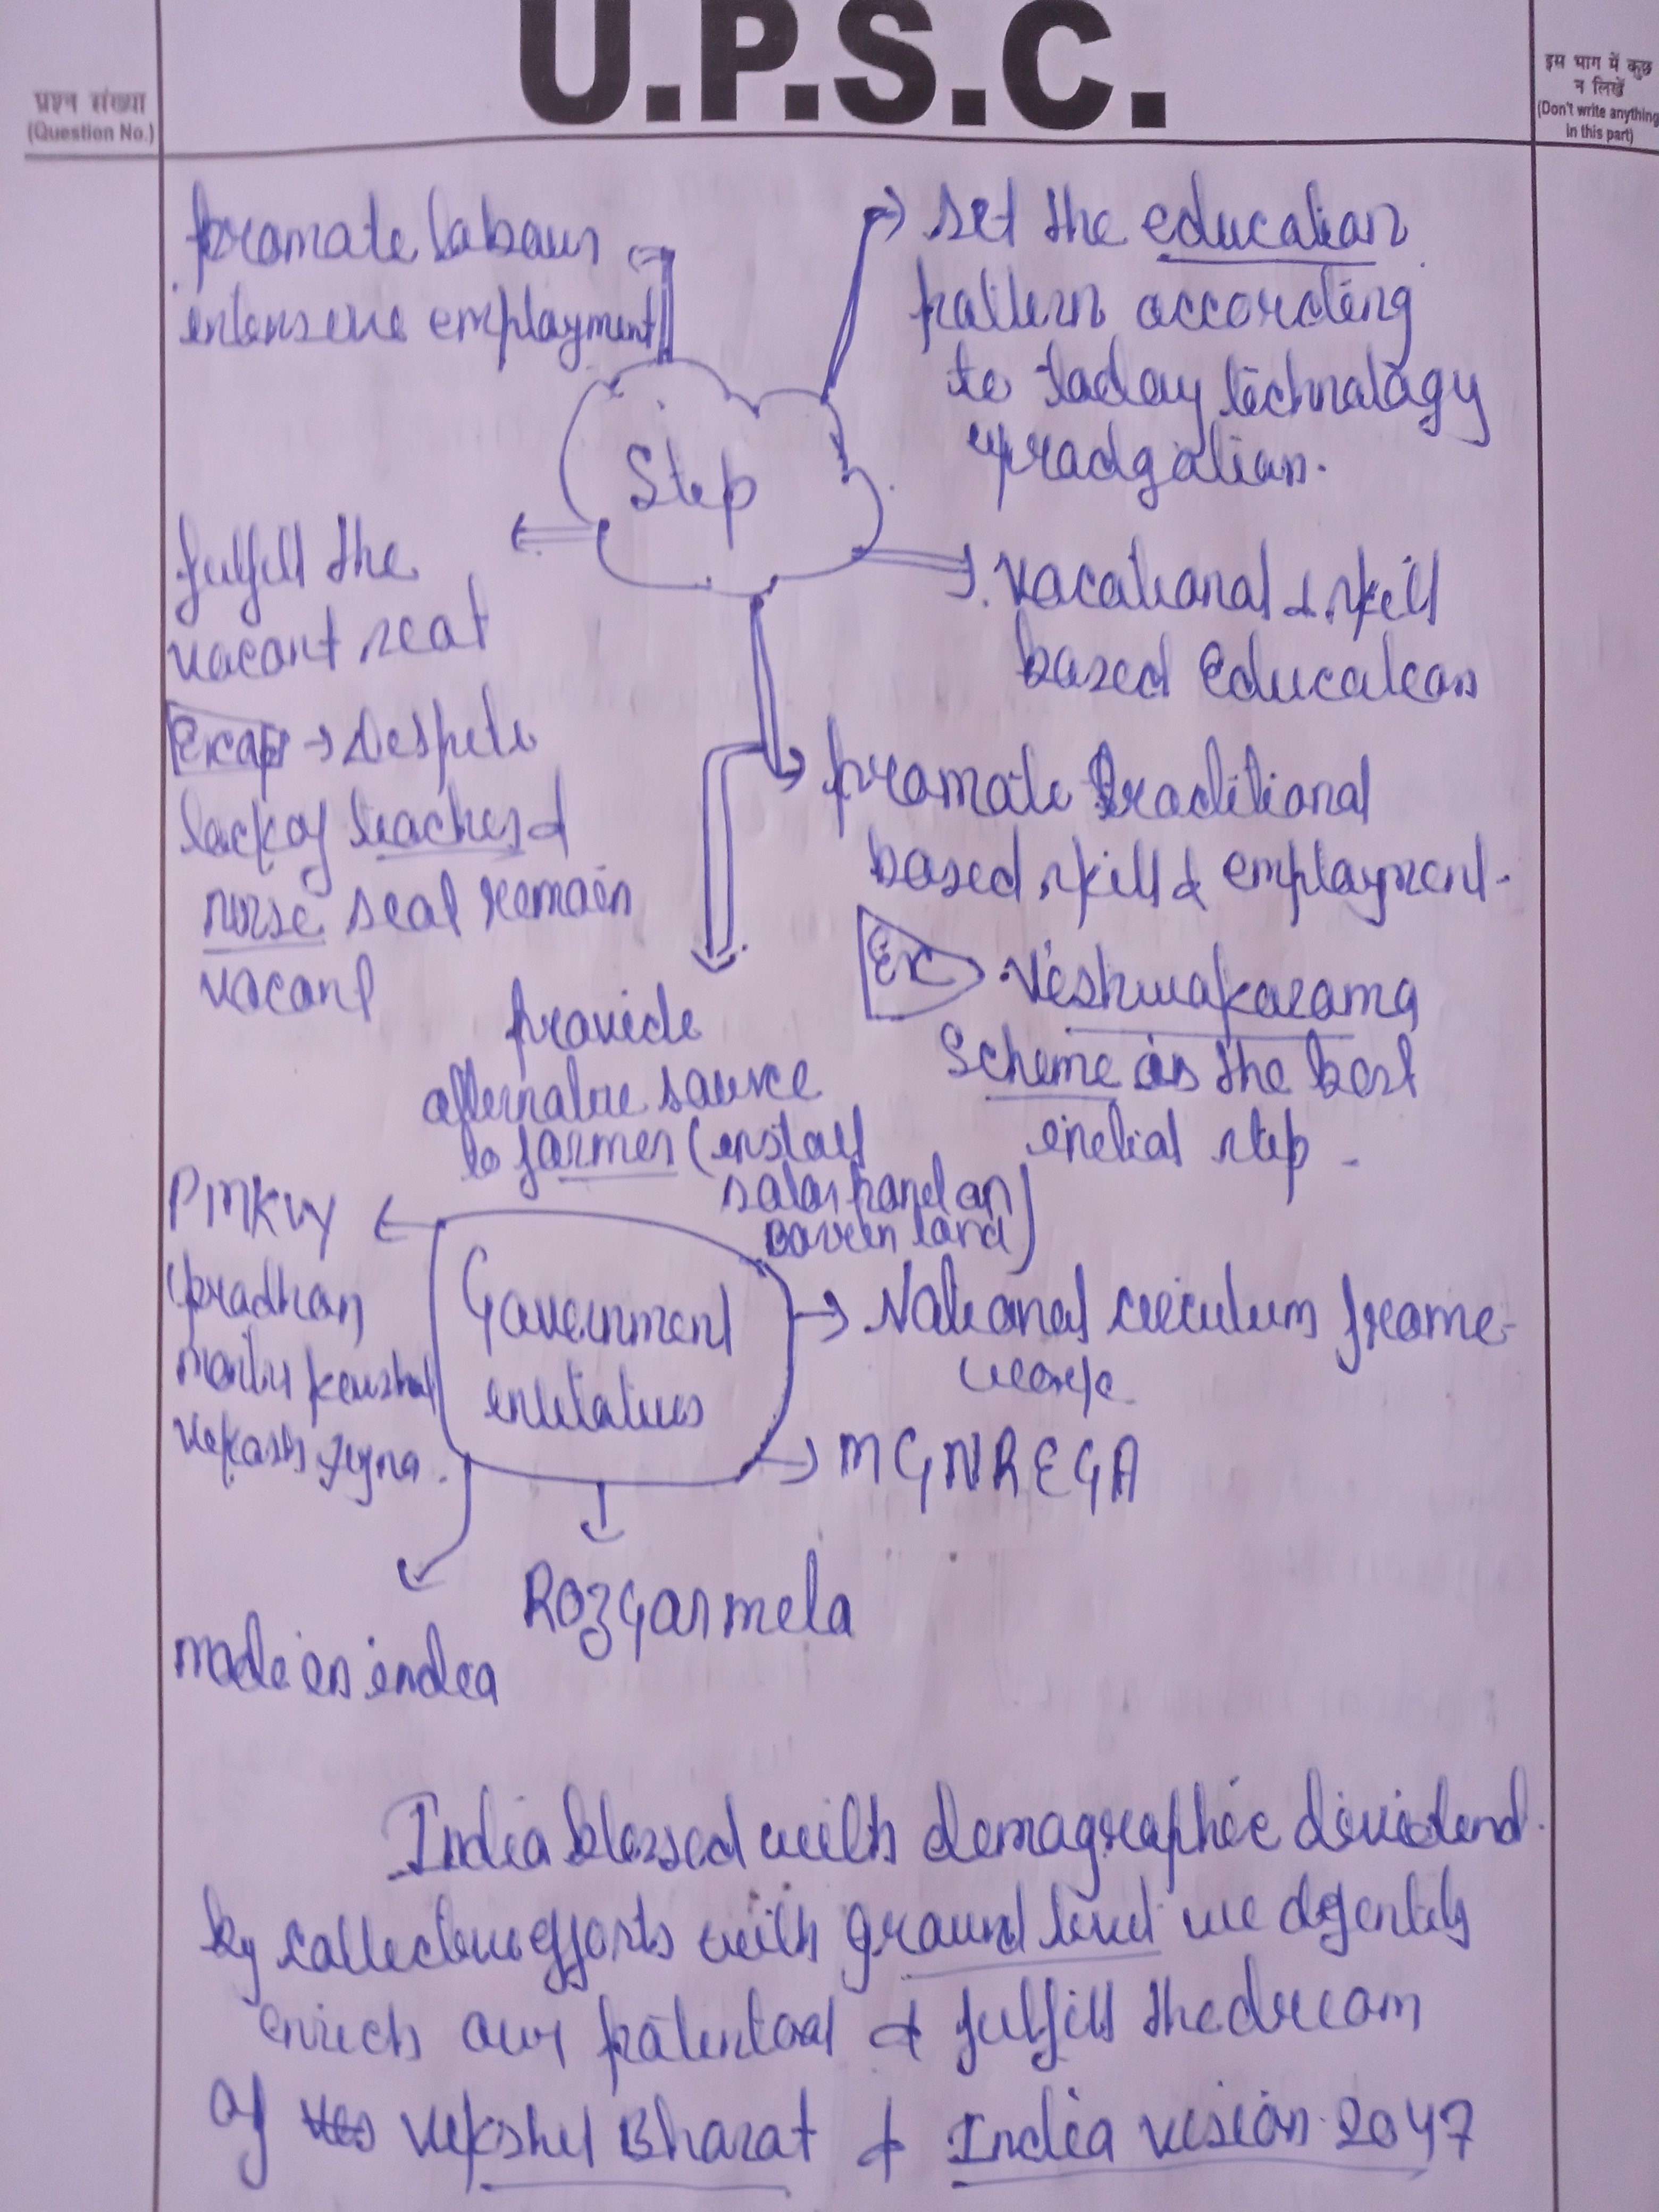 U.P.S.C.
प्रश्न संख्या
(Question No.)
इस भाग में कुछ
न लिखें
(Don't write anything
in this part)
promote labour
intensive employment
set the education
pattern according
to today technology
upradgation.
Step
fulfill the
vacant seat
Exap → Despite
lack of teacher &
nurse seat remain
vacant
vocational & skill
based Education
promote traditional
based skill & employment.
Ex Vishwakarama
Scheme is the best
initial step.
provide
alternative source
to farmer (install
solar panel on
Barren land)
PMKVY
(pradhan
mantri kaushal
vikash yojna.
Government
initiatives
National curriculum frame-
work
MGNREGA
Rozgar mela
made in india
India blessed with demographic dividend.
by collective efforts with ground level we definitely
enrich our potential & fulfill the dream
of vikshit Bharat & India vision 2047